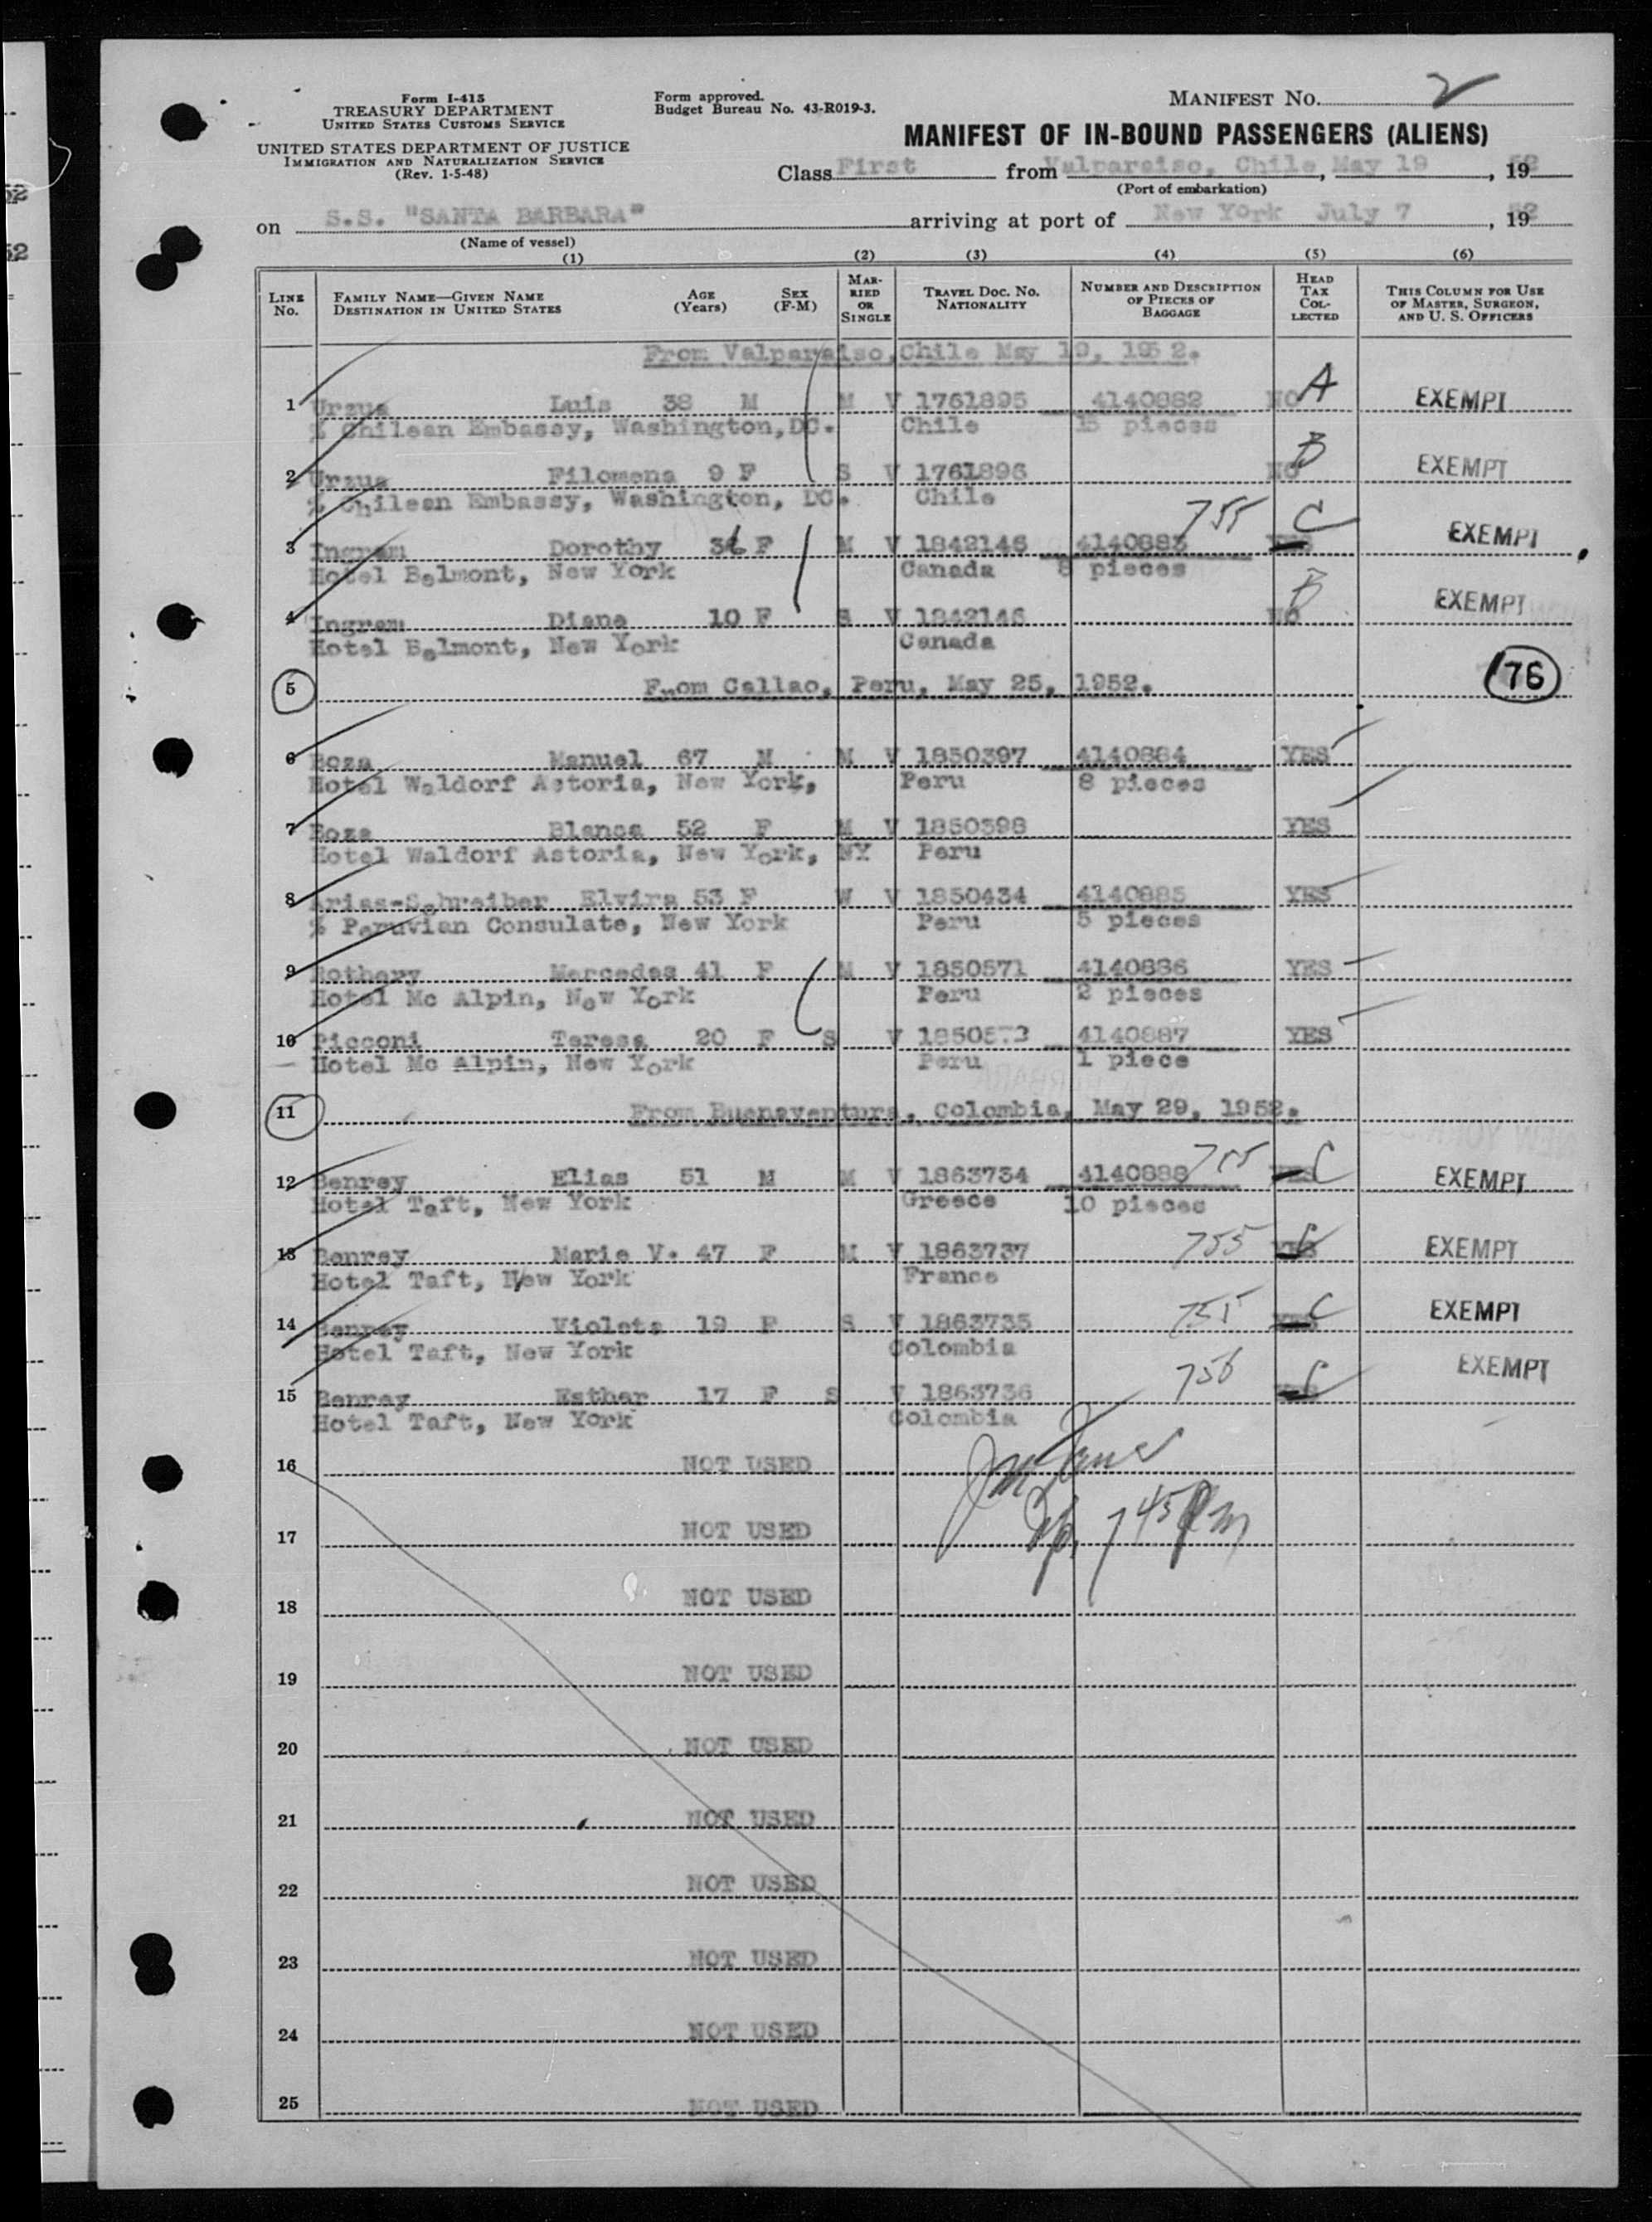 Form I-415
TREASURY DEPARTMENT
UNITED STATES CUSTOMS SERVICE
UNITED STATES DEPARTMENT OF JUSTICE
IMMIGRATION AND NATURALIZATION SERVICE
(Rev. 1-5-48)
Form approved.
Budget Bureau No. 43-R019-3.
MANIFEST NO. 2
MANIFEST OF IN-BOUND PASSENGERS (ALIENS)
Class First from Valparaiso, Chile, May 19, 1952
(Port of embarkation)
on S.S. "SANTA BARBARA" arriving at port of New York July 7, 1952
(Name of vessel)
(1) (2) (3) (4) (5) (6)
LINE NO. FAMILY NAME—GIVEN NAME DESTINATION IN UNITED STATES AGE (YEARS) SEX (F-M) MARRIED OR SINGLE TRAVEL DOC. NO. NATIONALITY NUMBER AND DESCRIPTION OF PIECES OF BAGGAGE HEAD TAX COLLECTED THIS COLUMN FOR USE OF MASTER, SURGEON, AND U. S. OFFICERS
From Valparaiso, Chile May 19, 1952.
1 Urzua Luis 38 M M V 1761895 4140882 NO A EXEMPT
% Chilean Embassy, Washington, DC. Chile 15 pieces
2 Urzua Filomena 9 F S V 1761896 NO B EXEMPT
% Chilean Embassy, Washington, DC. Chile
3 Ingram Dorothy 36 F M V 1842146 4140883 755 YES C EXEMPT
Hotel Belmont, New York Canada 8 pieces
4 Ingram Diana 10 F S V 1842146 NO B EXEMPT
Hotel Belmont, New York Canada
5 From Callao, Peru, May 25, 1952. 176
6 Boza Manuel 67 M M V 1850397 4140884 YES
Hotel Waldorf Astoria, New York, Peru 8 pieces
7 Boza Blanca 52 F M V 1850398 YES
Hotel Waldorf Astoria, New York, NY Peru
8 Arias-Schreiber Elvira 53 F W V 1850434 4140885 YES
% Peruvian Consulate, New York Peru 5 pieces
9 Rothery Mercedes 41 F M V 1850571 4140886 YES
Hotel Mc Alpin, New York Peru 2 pieces
10 Picconi Teresa 20 F S V 4140887 YES
Hotel Mc Alpin, New York Peru 1 piece
11 From Buenaventura, Colombia, May 29, 1952.
12 Benrey Elias 51 M M V 1863734 4140888 755 YES C EXEMPT
Hotel Taft, New York Greece 10 pieces
13 Benrey Marie V. 47 F M V 1863737 755 YES C EXEMPT
Hotel Taft, New York France
14 Benrey Violeta 19 F S V 1863735 755 YES C EXEMPT
Hotel Taft, New York Colombia
15 Benrey Esther 17 F S V 1863736 756 YES C EXEMPT
Hotel Taft, New York Colombia
16 NOT USED
17 NOT USED 7 45 PM
18 NOT USED
19 NOT USED
20 NOT USED
21 NOT USED
22 NOT USED
23 NOT USED
24 NOT USED
25 NOT USED